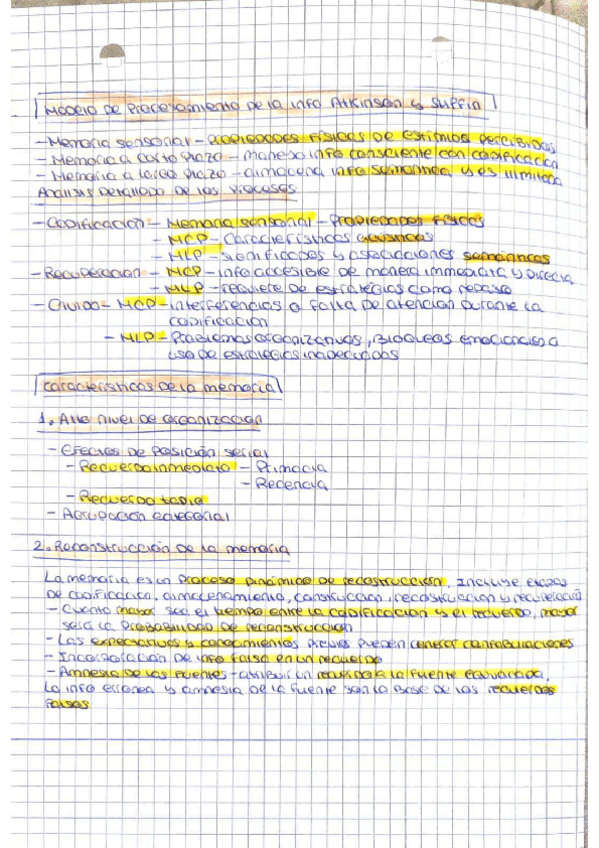 Modelo de Procesamiento de la info Atkinson y Shiffrin
- Memoria sensorial - propiedades físicas de estímulos percibidos
- Memoria a corto plazo - maneja info consciente con codificación
- Memoria a largo plazo - almacena info semántica y es ilimitada
Análisis detallado de los procesos
- Codificación - Memoria sensorial - Propiedades físicas
- MCP - Características acústicas
- MLP - significados y asociaciones semánticas
- Recuperación - MCP - info accesible de manera inmediata y directa
- MLP - requiere de estrategias como repaso
- Olvido - MCP - interferencias o falta de atención durante la
codificación
- MLP - Problemas organizativos, Bloqueos emocionales o
uso de estrategias inadecuadas
Características de la memoria
1. Alto nivel de organización
- Efectos de posición serial
- Recuerdo inmediato - Primacía
- Recencia
- Recuerdo tardío
- Agrupación categorial
2. Reconstrucción de la memoria
La memoria es un proceso dinámico de recostrucción. Incluye etapas
de codificación, almacenamiento, construcción, recostrucción y recuperación
- Cuanto mayor sea el tiempo entre la codificación y el recuerdo, mayor
será la probabilidad de reconstrucción
- Las expectativas y conocimientos previos pueden generar confabulaciones
- Incorporación de info falsa en un recuerdo
- Amnesia de las fuentes - atribuir un recuerdo a la fuente equivocada.
La info errónea y amnesia de la fuente son la base de los recuerdos
falsos